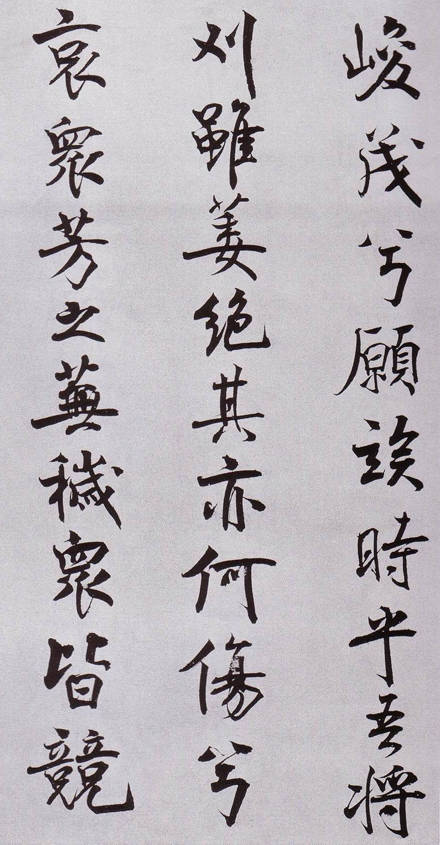 峻茂兮願竢時乎吾將
刈雖萎絕其亦何傷兮
哀眾芳之蕪穢眾皆競